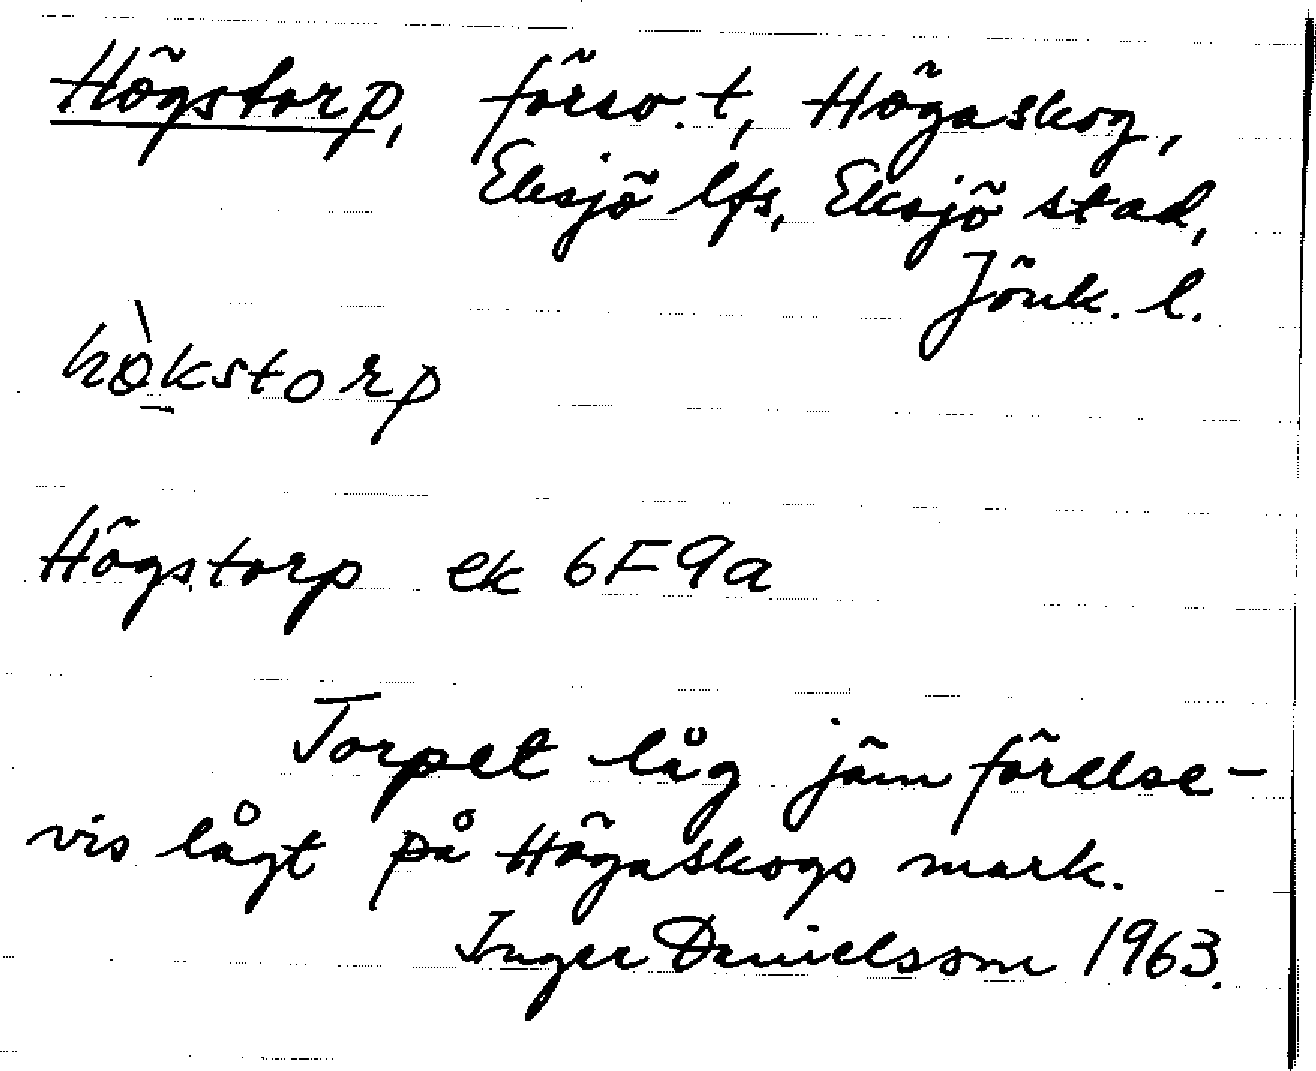 Högstorp, försv. t, Högaskog,
Eksjö lfs, Eksjö stad,
Jönk. l.
hö̀kstorp
Högstorp ek 6F9a
Torpet låg jämförelse-
vis lågt på Högaskogs mark.
Inger Danielsson 1963.